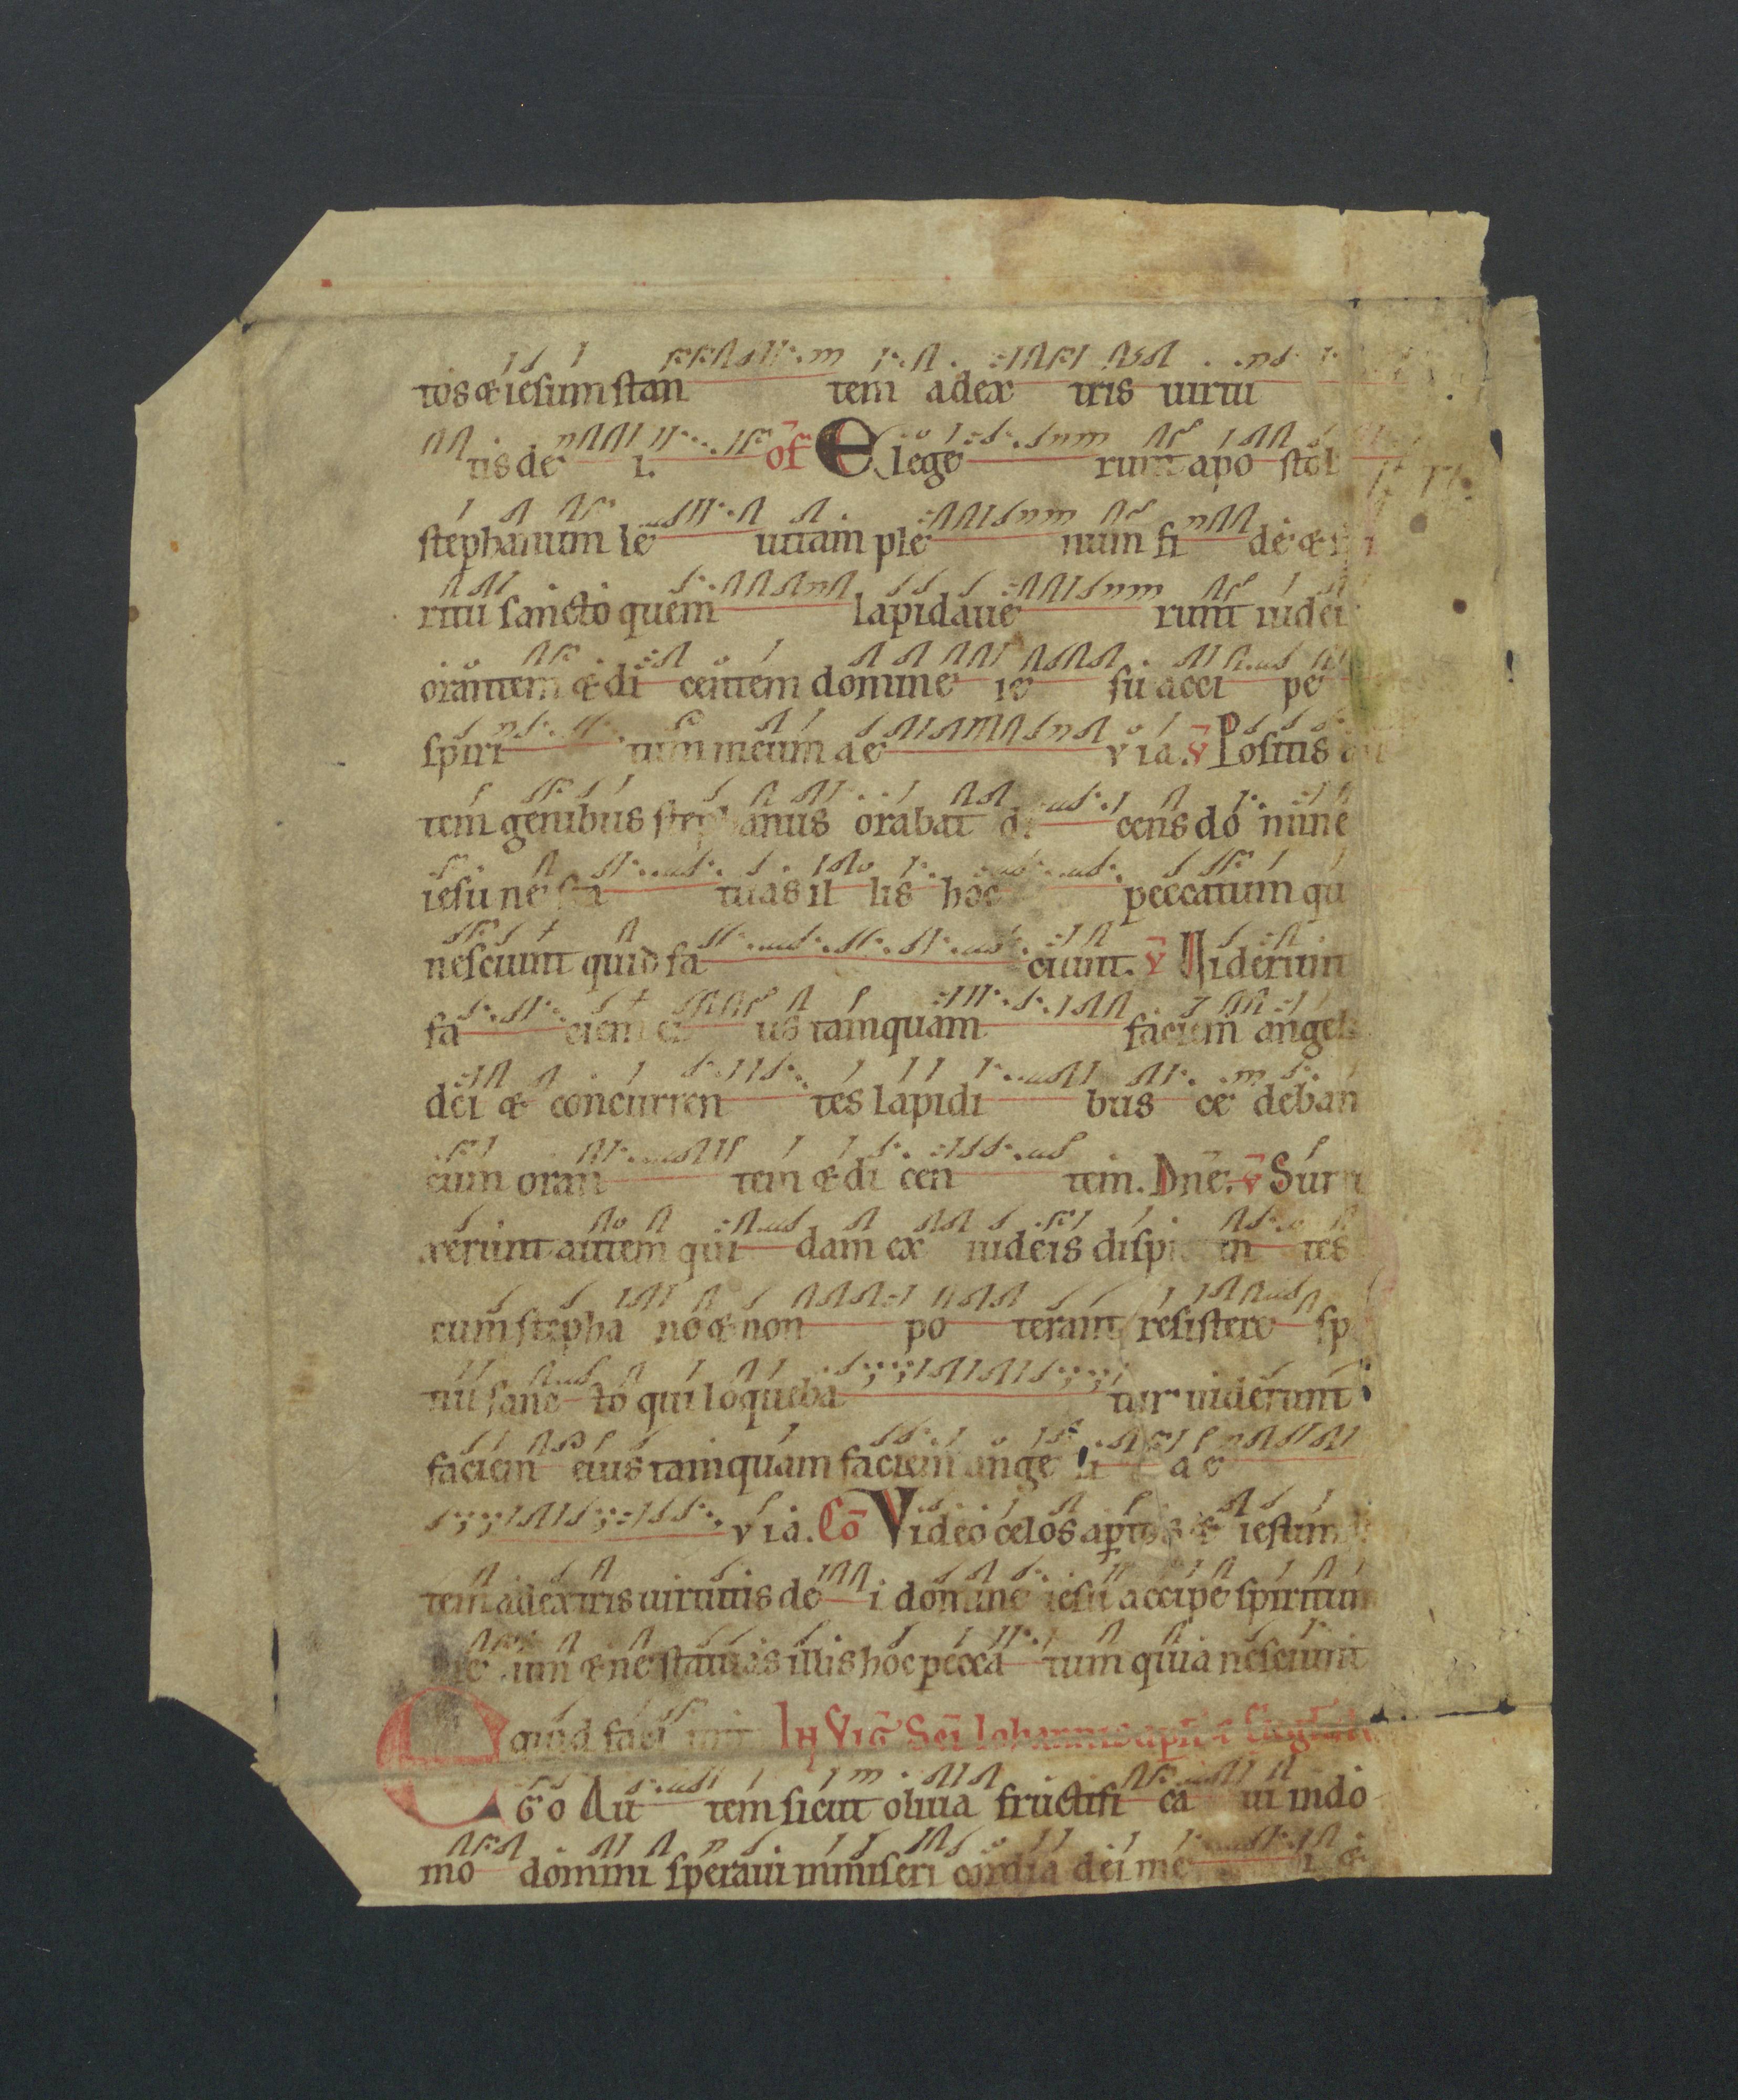 tos & iesum stan tem adex tris uirtu
tis de i. of Elege runt apo stol
stephanum le uitam ple num fi de & s
ritu sancto quem lapidaue runt iudei
orantem & di centem domine ie su acci pe
spiri tum meum a e v i a. v Posuis
tem genibus stephanus orabat di cens do mine
iesu ne sta tuas il lis hoc peccatum qu
nesciunt quid fa ciunt. v Uiderunt
fa ciem ei us tamquam faciem angeli
dei & concurren tes lapidi bus ce deban
eum oran tem & di cen tem. Dn̄e. v Surr
exerunt autem qui dam ex iudeis disp tan tes
cum stepha no & non po terant resistere sp
tui sanc to qui loqueba tur uiderunt
faciem eius tamquam faciem ange li a e
v i a. Cō Video celos aptos & iesum
tem adextris uirtutis de i domine iesu accipe spiritum
me um & ne statuas illis hoc pecca tum quia nesciunt
quid faci unt IN VIG SCI Iohannis apli & Euglste
EGO Au tem sicut oliua fructifi ca ui indo
mo domini speraui inmiseri cordia dei me i &